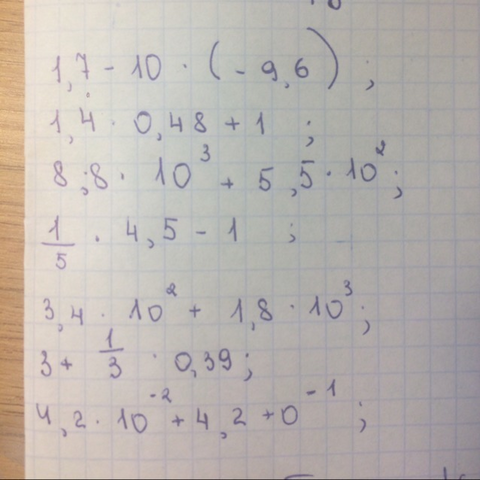 1,7 - 10 · (- 9,6) ;
1,4 · 0,48 + 1 ;
8,8 · 10³ + 5,5 · 10² ;
1/5 · 4,5 - 1 ;
3,4 · 10² + 1,8 · 10³ ;
3 + 1/3 · 0,39 ;
4,2 · 10⁻² + 4,2 + 0⁻¹ ;